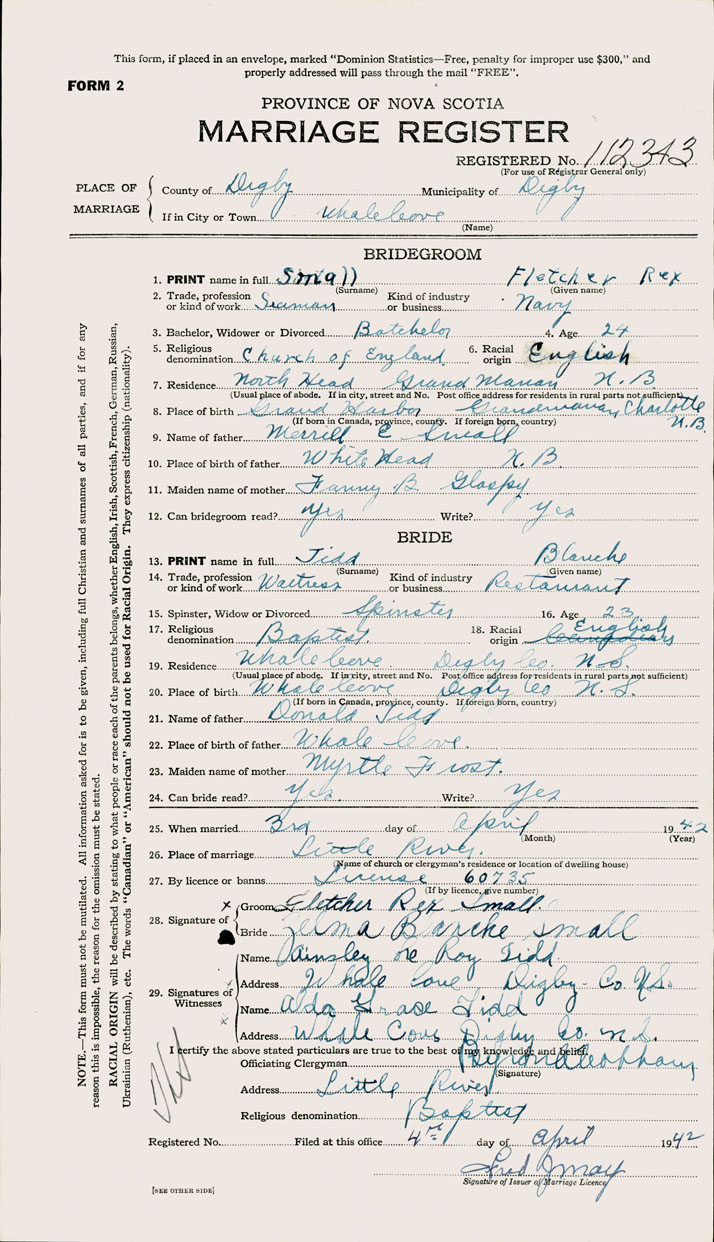 This form, if placed in an envelope, marked "Dominion Statistics—Free, penalty for improper use $300," and
properly addressed will pass through the mail "FREE".
FORM 2
PROVINCE OF NOVA SCOTIA
MARRIAGE REGISTER
REGISTERED No. 112343
(For use of Registrar General only)
PLACE OF MARRIAGE
County of Digby Municipality of Digby
If in City or Town Whale Cove
(Name)
BRIDEGROOM
1. PRINT name in full Small Fletcher Rex
(Surname) (Given name)
2. Trade, profession or kind of work Seaman Kind of industry or business Navy
3. Bachelor, Widower or Divorced Batchelor 4. Age 24
5. Religious denomination Church of England 6. Racial origin English
7. Residence North Head Grand Manan N.B
(Usual place of abode. If in city, street and No. Post office address for residents in rural parts not sufficient)
8. Place of birth Grand Harbor Charlotte N.B.
(If born in Canada, province, county. If foreign born, country)
9. Name of father Merrill E Small
10. Place of birth of father White Head N.B.
11. Maiden name of mother Fanny B Glaspy
12. Can bridegroom read? Yes Write? Yes
BRIDE
13. PRINT name in full Tidd Blanche
(Surname) (Given name)
14. Trade, profession or kind of work Waitress Kind of industry or business Restaurant
15. Spinster, Widow or Divorced Spinster 16. Age 23
17. Religious denomination Baptist. 18. Racial origin English
19. Residence Whale Cove Digby Co. N.S.
(Usual place of abode. If in city, street and No. Post office address for residents in rural parts not sufficient)
20. Place of birth Whale Cove Digby Co N.S.
(If born in Canada, province, county. If foreign born, country)
21. Name of father Donald Tidd
22. Place of birth of father Whale Cove.
23. Maiden name of mother Myrtle Frost.
24. Can bride read? Yes. Write? Yes
25. When married 3rd day of April 1942
(Month) (Year)
26. Place of marriage Little River.
(Name of church or clergyman's residence or location of dwelling house)
27. By licence or banns License 60735
(If by licence, give number)
28. Signature of
x Groom Fletcher Rex Small.
Bride Zelma Blanche Small
29. Signatures of Witnesses
Name Ainsley Le Roy Tidd
Address Whale Cove Digby Co. N.S.
x Name Alda Grase Tidd
Address Whale Cove Digby Co. N.S.
I certify the above stated particulars are true to the best of my knowledge and belief.
Officiating Clergyman
(Signature)
Address Little River
Religious denomination Baptist
Registered No. Filed at this office 4th day of April 1942
Fred J May
Signature of Issuer of Marriage Licence
[SEE OTHER SIDE]
NOTE.—This form must not be mutilated. All information asked for is to be given, including full Christian and surnames of all parties, and if for any
reason this is impossible, the reason for the omission must be stated.
RACIAL ORIGIN will be described by stating to what people or race each of the parents belongs, whether English, Irish, Scottish, French, German, Russian,
Ukrainian (Ruthenian), etc. The words "Canadian" or "American" should not be used for Racial Origin. They express citizenship (nationality).